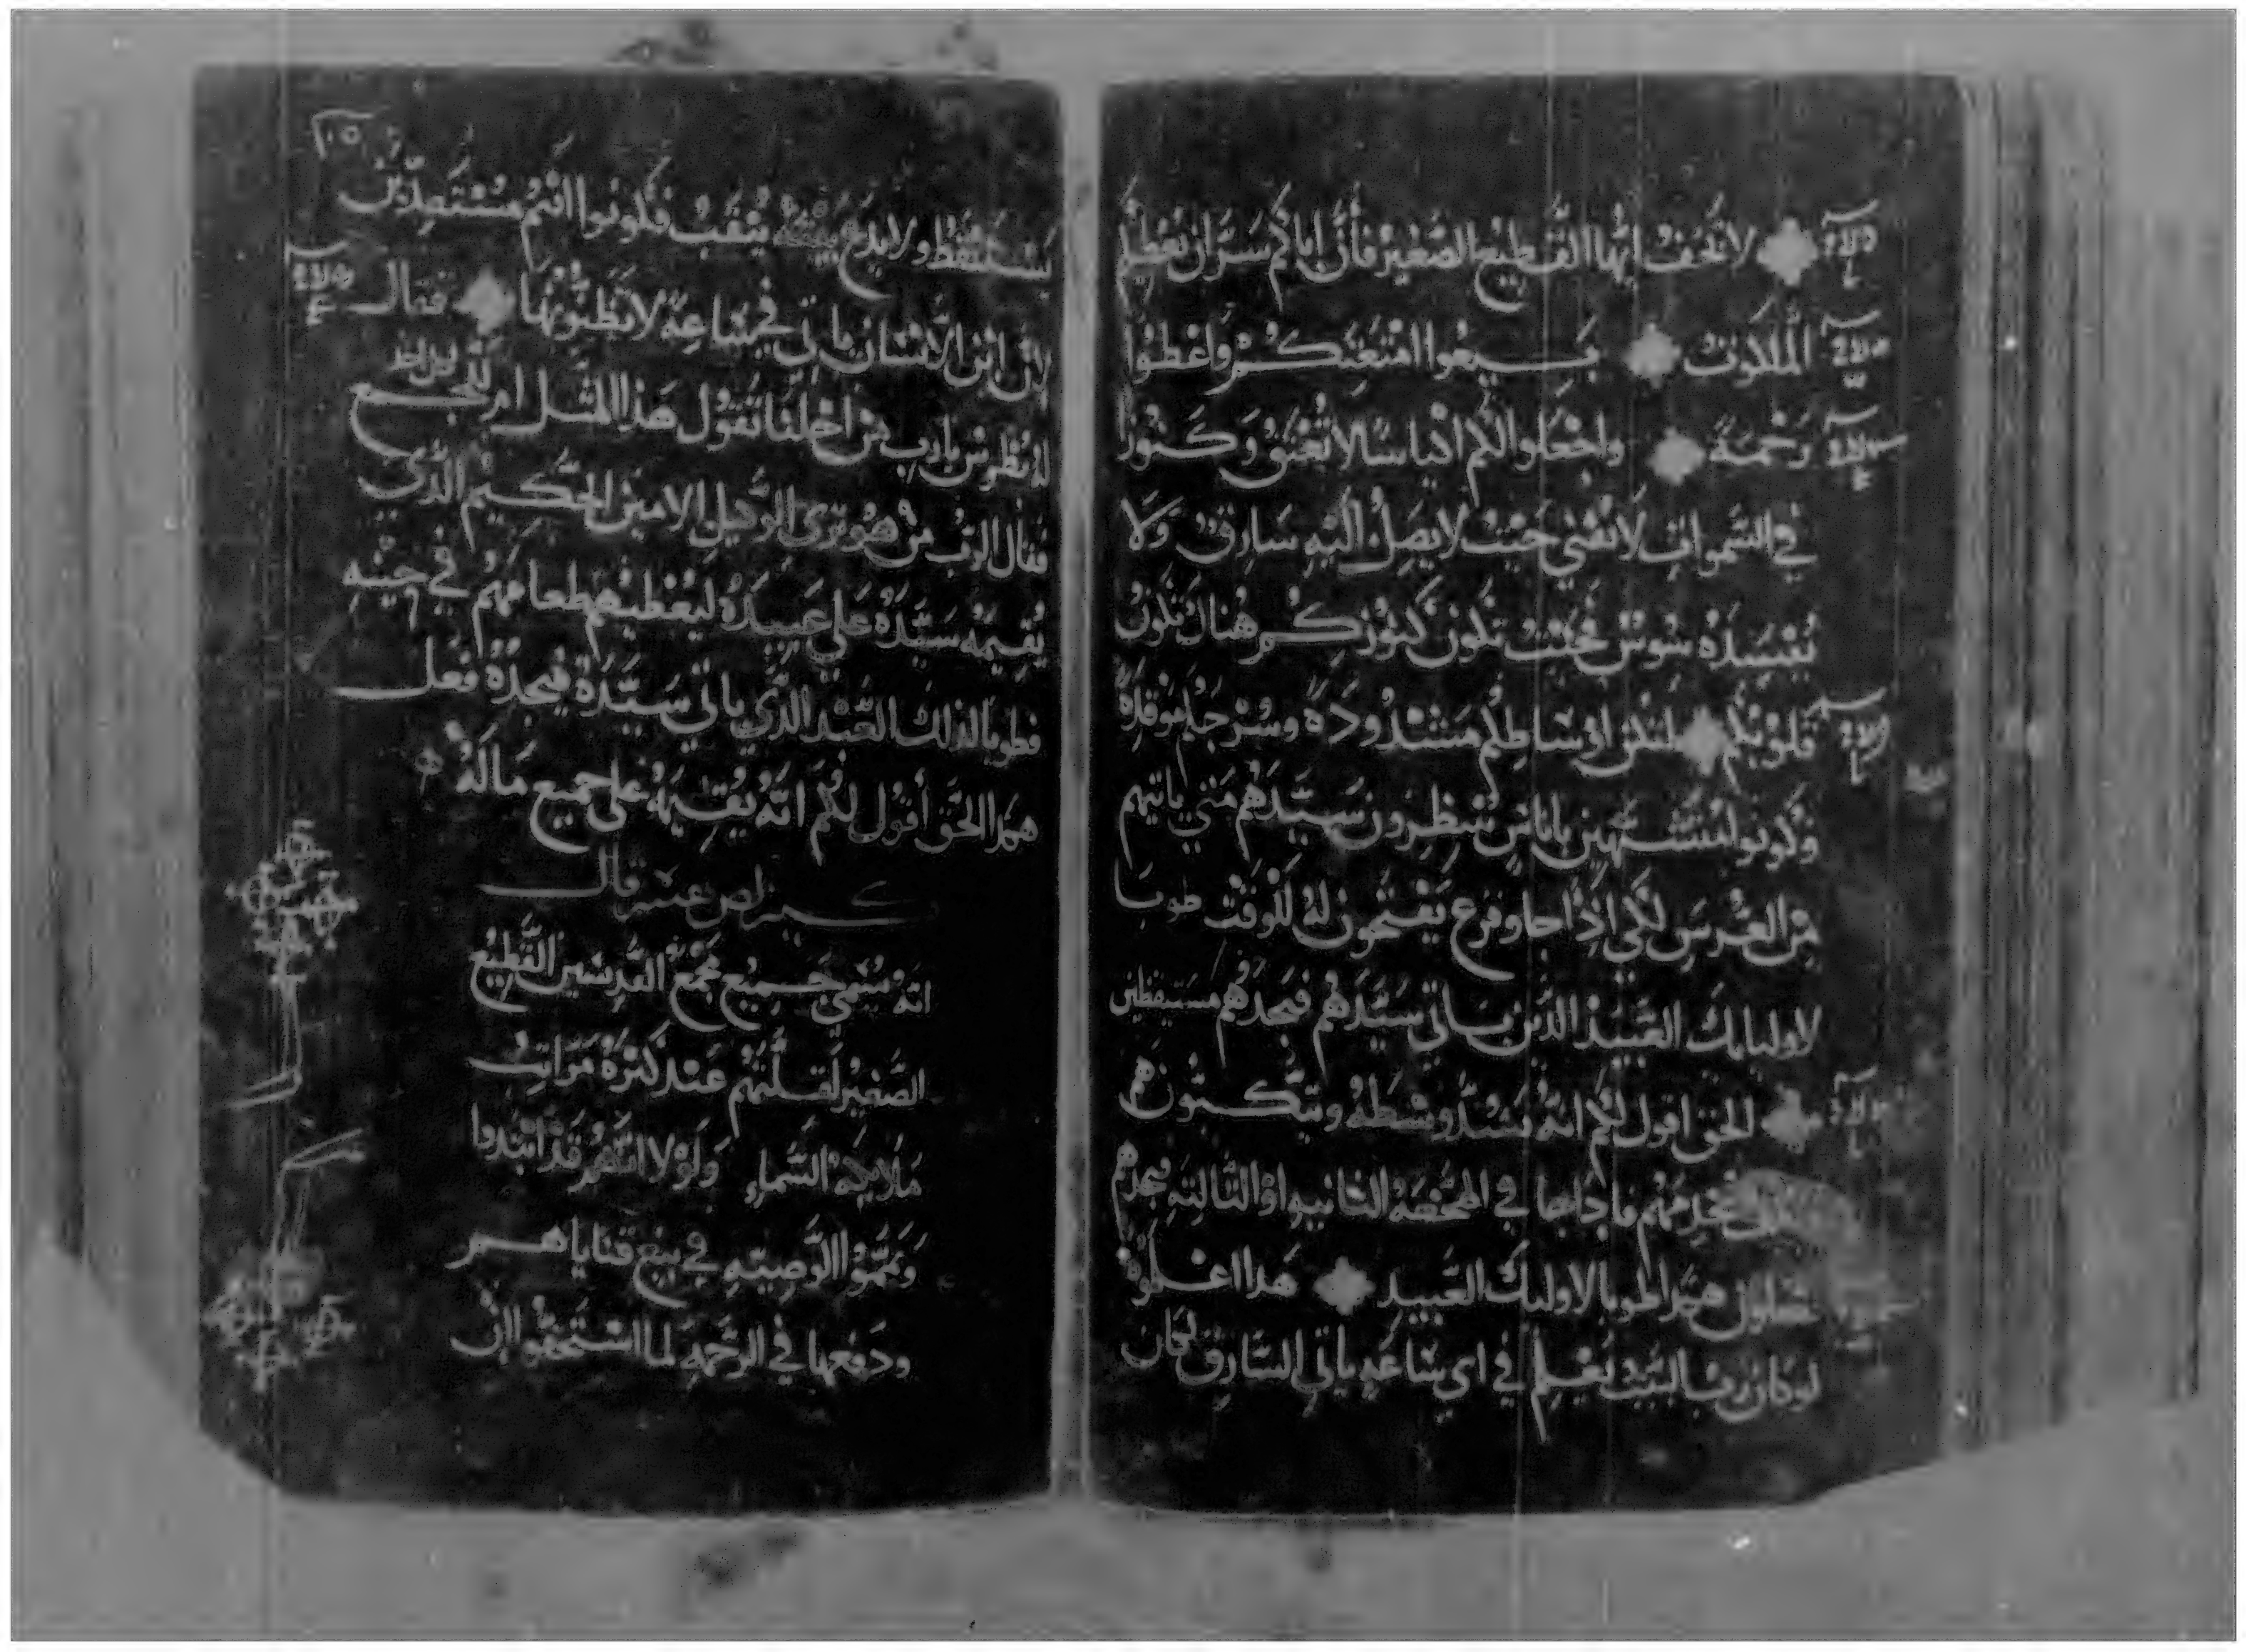 لا تخف ايها القطيع الصغير فان اباكم سر ان يعطيكم
الملكوت بيعوا امتعتكم واعطوا
رحمة واجعلوا لكم اكياسا لا تعتق وكنوزا
في السموات لا تفني حيث لا يصل اليه سارق ولا
يفسده سوس فحيث تكون كنوزكم هناك تكون
قلوبكم لتكن اوساطكم مشدودة وسرجكم موقدة
وكونوا متشبهين باناس ينتظرون سيدهم متي ياتيهم
من العرس لكي اذا جا وقرع يفتحون له للوقت طوبا
لاوليايك العبيد الذين ياتي سيدهم فيجدهم مستيقظين
الحق اقول لكم انه يشد وسطه ويتكيون هم
يخدمهم فاذا جا في الهجعة الثانيه او الثالثه فيجدهم
يفعلون هكذا طوبا لاوليك العبيد هدا اعلموه
لو كان رب البيت يعلم في اي ساعه ياتي السارق لكان
١٠٥
يستيقظ ولا يدع بيته ينقب فكونوا انتم مستعدين
لان ابن الانسان ياتي في ساعة لا تظنونها فقال
له بطرس يارب من اجلنا تقول هذا المثل ام للجميع
فقال الرب من هو تري الوكيل الامين الحكيم الذي
يقيمه سيده علي عبيده ليعطيهم طعامهم في حينه
فطوبا لذلك العبد الذي ياتي سيده فيجده فعل
هكذا الحق اقول لكم انه يقيمه علي جميع ماله
قال
انه سمي جميع مجمع القديسين القطيع
الصغير لقلتهم عند كثرة مراتب
ملايكة السماء ولولا انهم قد ابتدوا
وتمموا الوصيه في بيع قناياهم
ودفعها في الرحمه لما استحقوا ان